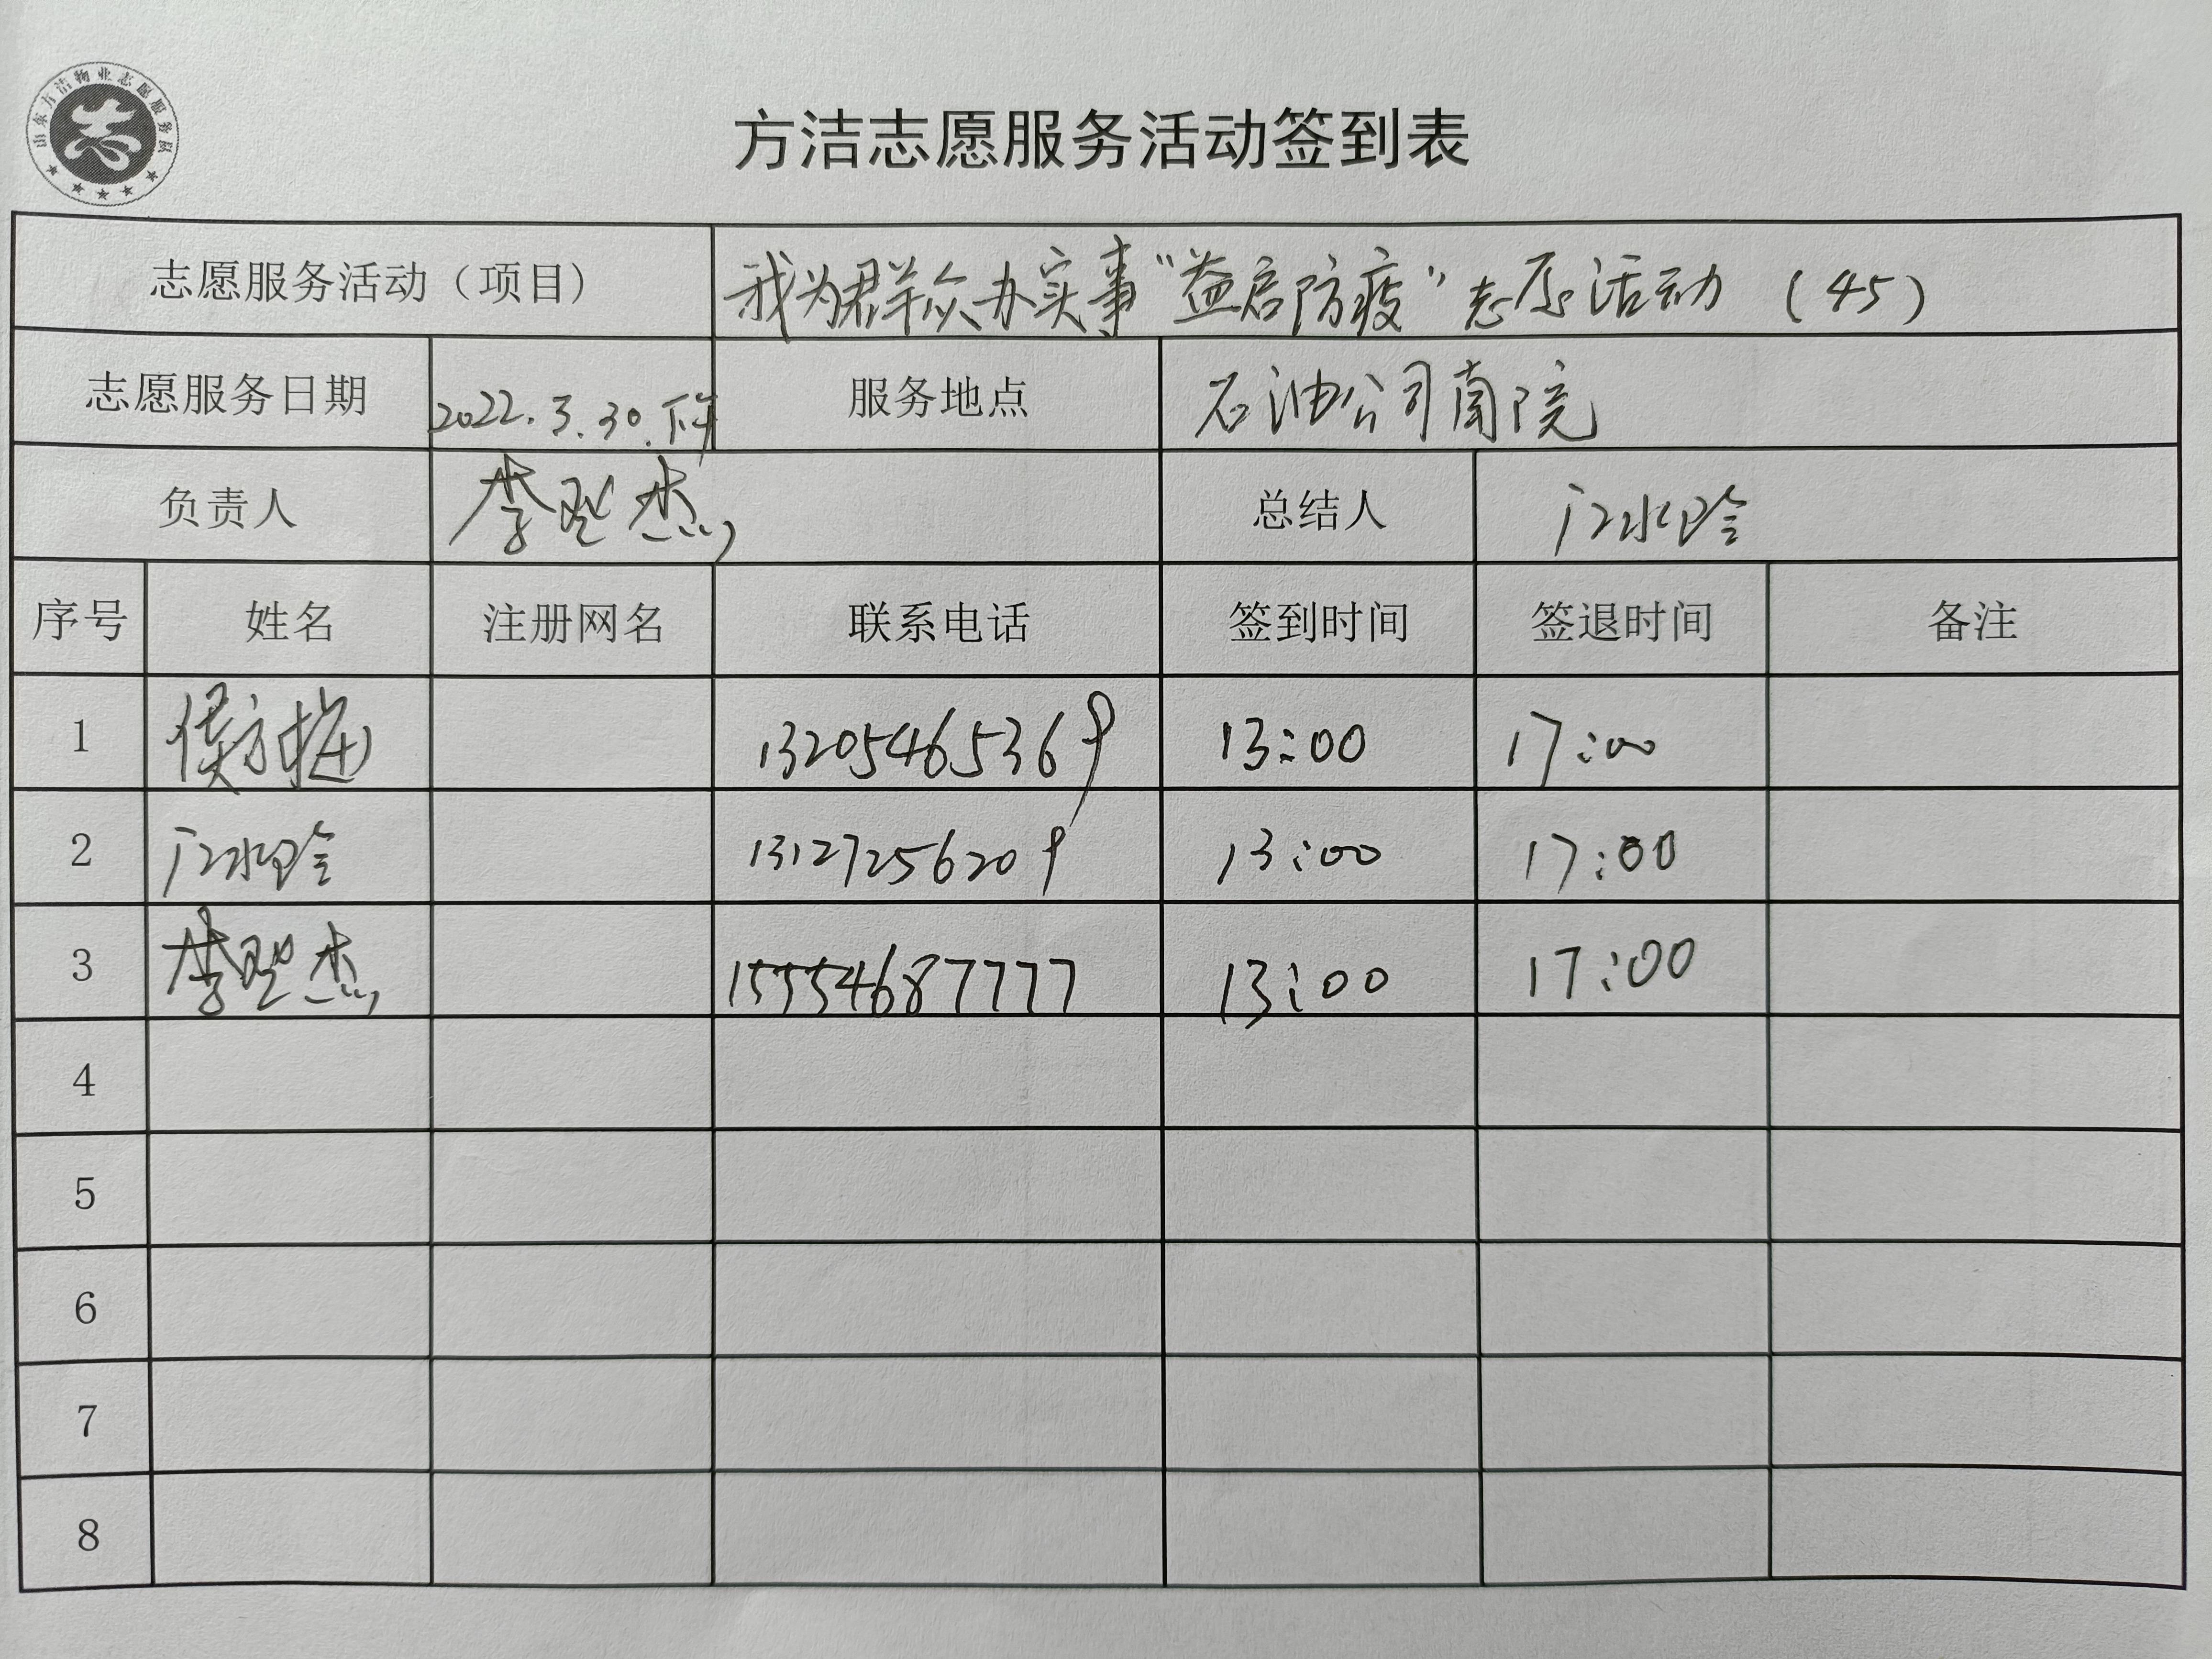 山东方洁物业志愿服务队
方洁志愿服务活动签到表
志愿服务活动（项目） 我为群众办实事“益启防疫”志愿活动（45）
志愿服务日期 2022.3.30.下午 服务地点 石油公司南院
负责人 李 杰 总结人
序号 姓名 注册网名 联系电话 签到时间 签退时间 备注
1 侯方梅 13205465369 13:00 17:00
2 13127256209 13:00 17:00
3 李 杰 15554687777 13:00 17:00
4
5
6
7
8